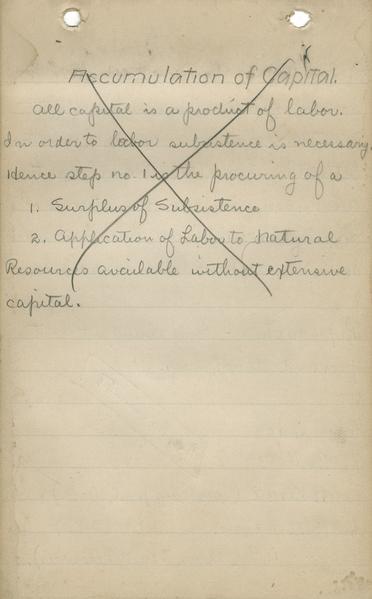 Accumulation of Capital.
All capital is a product of labor.
In order to labor subsistence is necessary.
Hence step no. 1 is the procuring of a
1. Surplus of Subsistence
2. Application of Labor to Natural
Resources available without extensive
capital.